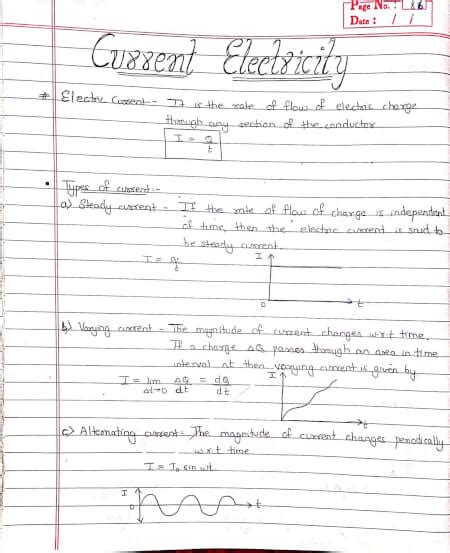 Page No. :
Date : / /
Current Electricity
# Electric Current - It is the rate of flow of electric charge
through any section of the conductor
I = Q/t
• Types of current :-
a) Steady current - If the rate of flow of charge is independent
of time, then the electric current is said to
be steady current.
I = q/t
I
O
t
b) Varying current - The magnitude of current changes w.r.t time.
If a charge ΔQ passes through an area in time
interval Δt then varying current is given by
I = lim Δt→0 ΔQ/dt = dQ/dt
I
t
c) Alternating current - The magnitude of current changes periodically
w.r.t time
I = I₀ sin wt
I
0
t